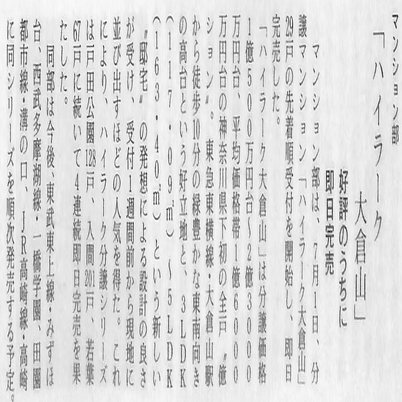 マンション部
「ハイラーク
大倉山」
好評のうちに
即日完売
マンション部は、7月1日、分
譲マンション「ハイラーク大倉山」
29戸の先着順受付を開始し、即日
完売した。
「ハイラーク大倉山」は分譲価格
1億500万円台~2億3000
万円台、平均価格帯1億6000
万円台の神奈川県下初の全戸〝億
ション〟。東急東横線・大倉山駅
から徒歩10分の緑豊かな東南向き
の高台という好立地と、3LDK
(117・0㎡)~5LDK
(163・40㎡)という新しい
〝邸宅〟の発想による設計の良さ
が受け、受付1週間前から現地に
並び出すほどの人気を得た。これ
により、ハイラーク分譲シリーズ
は戸田公園128戸、入間201戸、若葉
67戸に続いて4連続即日完売を果
たした。
同部は今後、東武東上線・みずほ
台、西武多摩湖線・一橋学園、田園
都市線・溝の口、JR高崎線・高崎
に同シリーズを順次発売する予定。